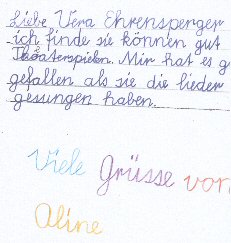 Liebe Vera Ehrensperger
ich finde sie können gut
Theaterspielen. Mir hat es g
gefallen als sie die lieder
gesungen haben.
Viele Grüsse von
Aline